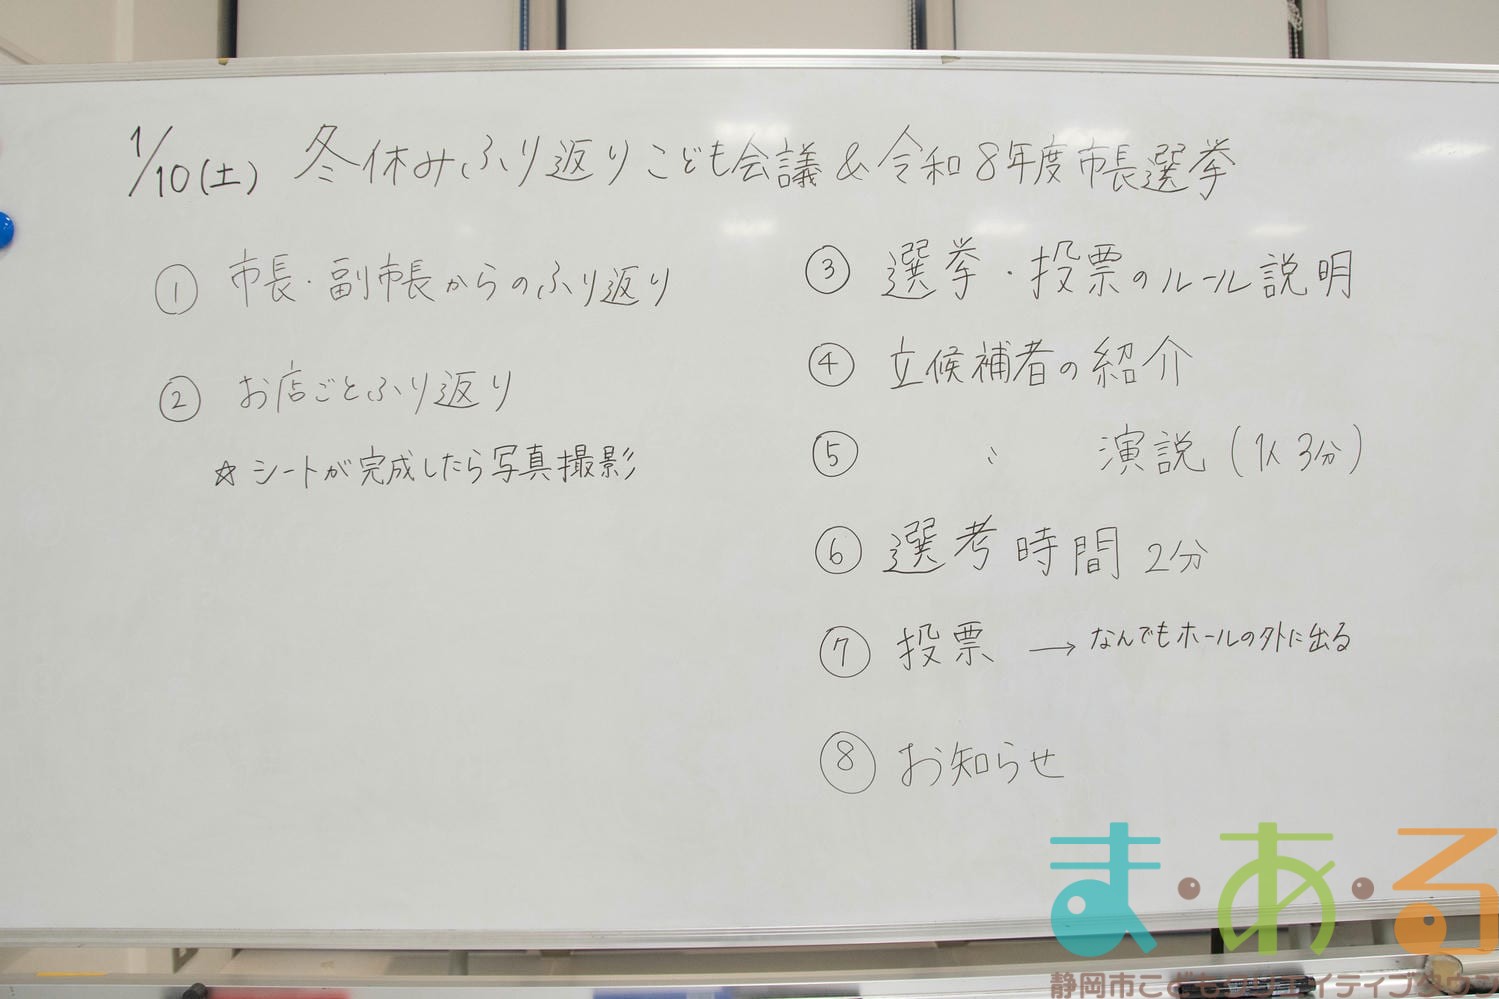 1/10(土) 冬休みふり返りこども会議&令和8年度市長選挙
① 市長・副市長からのふり返り
② お店ごとふり返り
☆ シートが完成したら写真撮影
③ 選挙・投票のルール説明
④ 立候補者の紹介
⑤ 〃 演説(1人3分)
⑥ 選考時間 2分
⑦ 投票 → なんでもホールの外に出る
⑧ お知らせ
ま・あ・る
静岡市こどもクリエイティブタウン